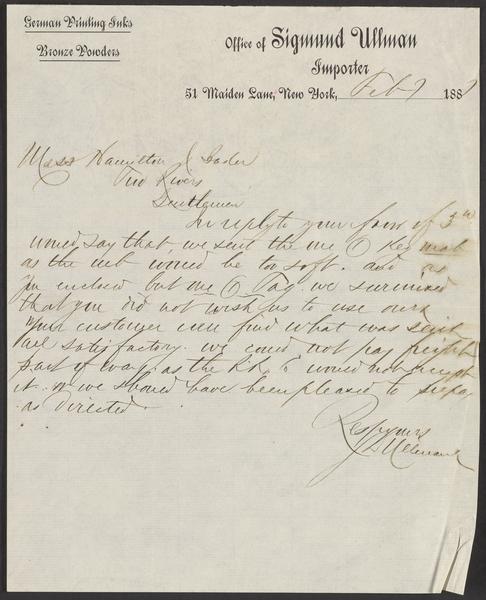 German Printing Inks
Bronze Powders
Office of Sigmund Ullman
Importer
51 Maiden Lane, New York, Feb 7 188
Mess Hamilton &
Two Rivers
Gentlemen
In reply to your favor of 3rd
would say that we sent the one
as the would be too soft. and as
you enclosed but one tag we surmised
that you did not wish us to use ours
Your customer will find what was sent
all satisfactory. we could not pay freight
part of way. as the RR Co would not accept
it. or we should have been pleased to
as directed.
Resp yours
S Ullman